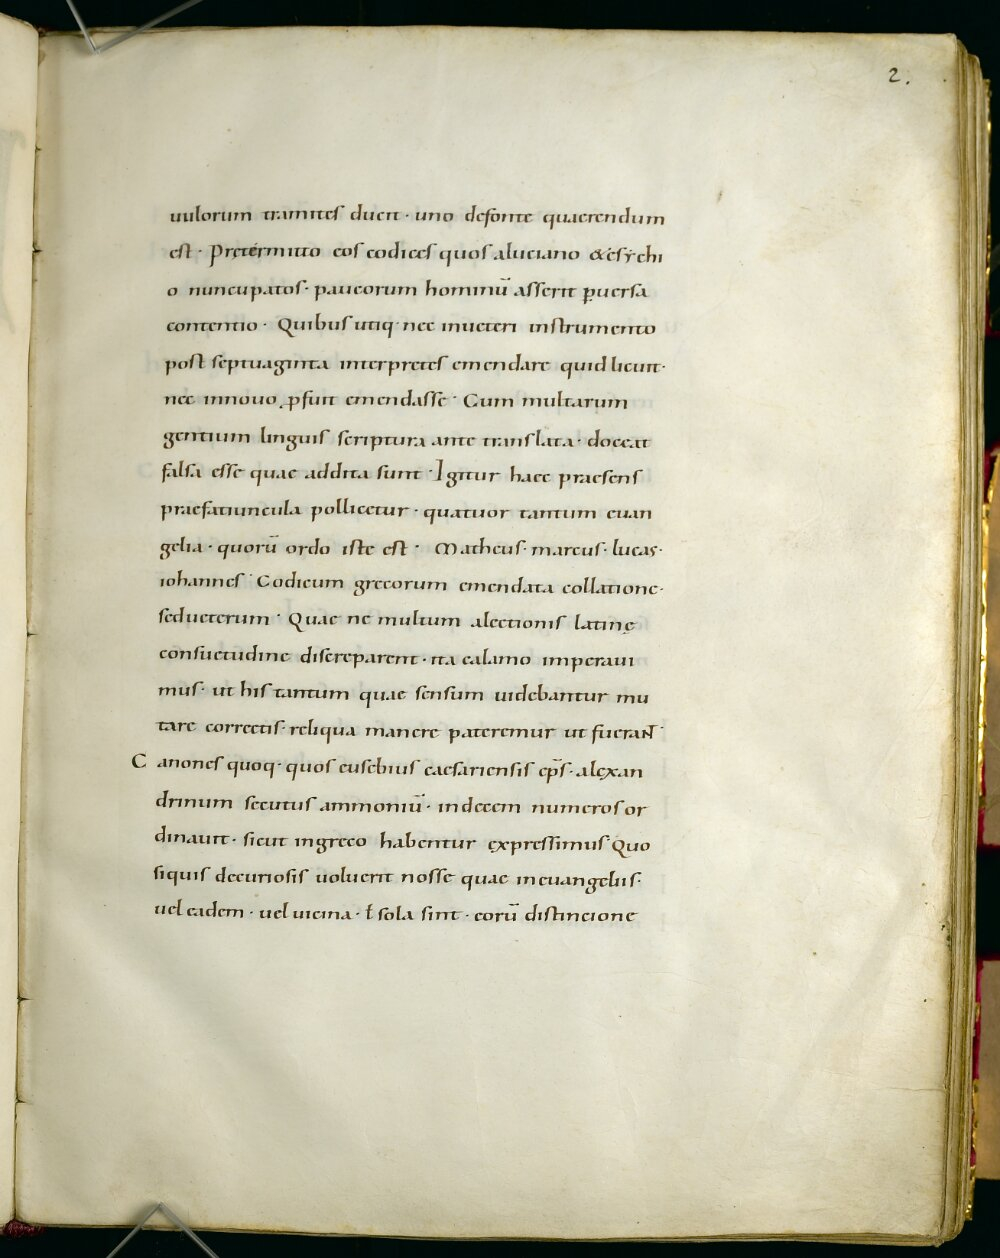 2.
uulorum tramites ducit · uno defonte quaerendum
est · Pretermitto eos codices quos aluciano &esychi
o nuncupatos · paucorum hominū asserit ꝑuersa
contentio · Quibus utiq· nec inueteri instrumento
post septuaginta interpretes emendare quid licuit ·
nec innouo ꝓfuit emendasse · Cum multarum
gentium linguis scriptura ante translata · doceat
falsa esse quae addita sunt · Igitur haec praesens
praefatiuncula pollicetur · quatuor tantum euan
gelia · quorū ordo iste est · Matheus · marcus · lucas ·
iohannes · Codicum grecorum emendata collatione ·
seduceterum · Quae ne multum alectionis latinę
consuetudine discreparent · ita calamo imperaui
mus · ut his tantum quae sensum uidebantur mu
tare correctis · reliqua manere pateremur ut fuerant ·
Canones quoq· quos eusebius caesariensis ep̄s · alexan
drinum secutus ammoniū · indecem numeros or
dinauit · sicut ingreco habentur expressimus Quo
siquis decuriosis uoluerit nosse quae ineuangeliis ·
uel eadem · uel uicina · ł sola sint · eorū distincione